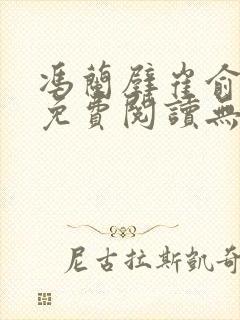 馮蘭壁崔俞
免費閱讀無
尼古拉斯凱奇